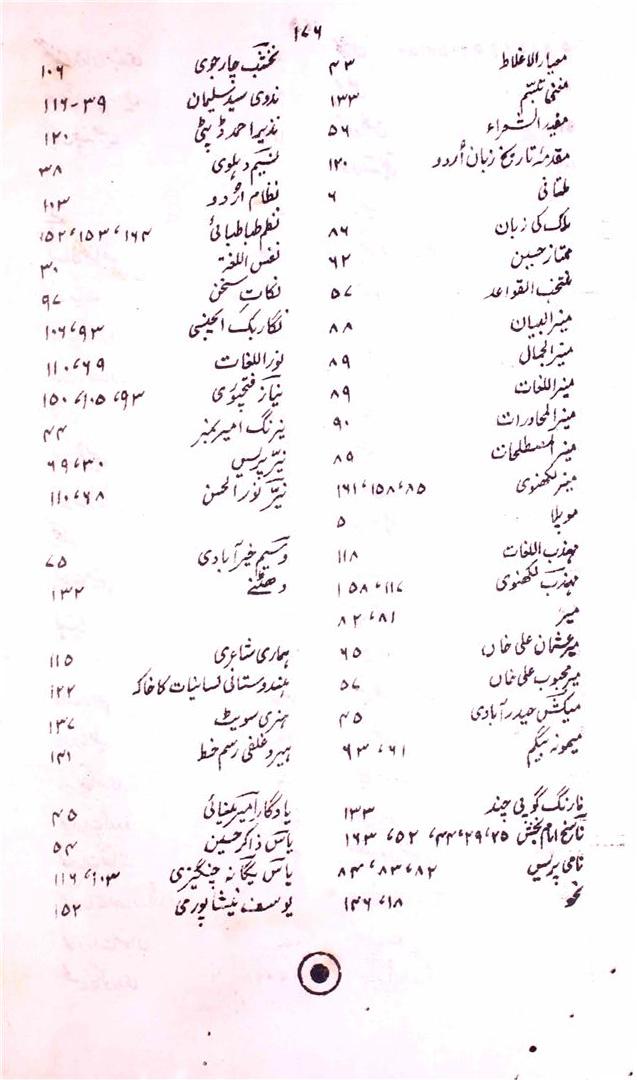 ۱۷۶
معیار الاغلاط ۴۳
مغنی تبسّم ۱۳۳
مفید الشعراء ۵۶
مقدمۂ تاریخ زبان اُردو ۱۲۰
ملتانی ۶
ملک کی زبان ۸۶
ممتاز حسین ۶۲
منتخب القواعد ۵۷
منیر البیان ۸۸
منیر الجمال ۸۹
منیر اللغات ۸۹
منیر المحاورات ۹۰
منیر المصطلحات ۸۹
منیر لکھنوی ۸۵، ۱۵۸، ۱۶۱
موپلا ۵
مہذب اللغات ۱۱۸
مہذّب لکھنوی ۱۱۷، ۱۵۸
میر ۸۱، ۸۲
میر عثمان علی خاں ۶۵
میر محبوب علی خاں ۵۷
میکش حیدرآبادی ۴۵
میمونہ بیگم ۶۱، ۹۳
نارنگ گوپی چند ۱۳۳
ناسخ امام بخش ۲۵، ۲۹، ۴۴، ۵۲، ۱۶۳
نامی پریس ۸۲، ۸۳، ۸۴
نحو ۱۸، ۱۴۶
نخشب چارجوی ۱۰۶
ندوی سید سلیمان ۳۹-۱۱۶
نذیر احمد ڈپٹی ۱۲۰
نسیم دہلوی ۳۸
نظام اُردو ۱۰۳
نظم طباطبائی ۱۶۴، ۱۵۳، ۱۵۲
نفس اللغۃ ۳۰
نکاتِ سخن ۹۷
نگار بک ایجنسی ۹۳، ۱۰۶
نور اللغات ۶۹، ۱۱۰
نیاز فتحپوری ۹۳، ۱۰۵، ۱۵۰
نیرنگ امیر نمبر ۴۴
نیّر پریس ۳۰، ۶۹
نیّر نور الحسن ۶۸، ۱۱۰
وسیم خیرآبادی ۷۵
وھٹنے ۱۳۲
ہماری شاعری ۱۱۵
ہندوستانی لسانیات کا خاکہ ۱۲۲
ہنری سویٹ ۱۳۷
ہیروغلفی رسم خط ۱۴۱
یادگار امیر مینائی ۴۵
یاس ذاکر حسین ۵۴
یاس یگانہ چنگیزی ۱۰۳، ۱۱۶
یوسف نیشاپوری ۱۵۲